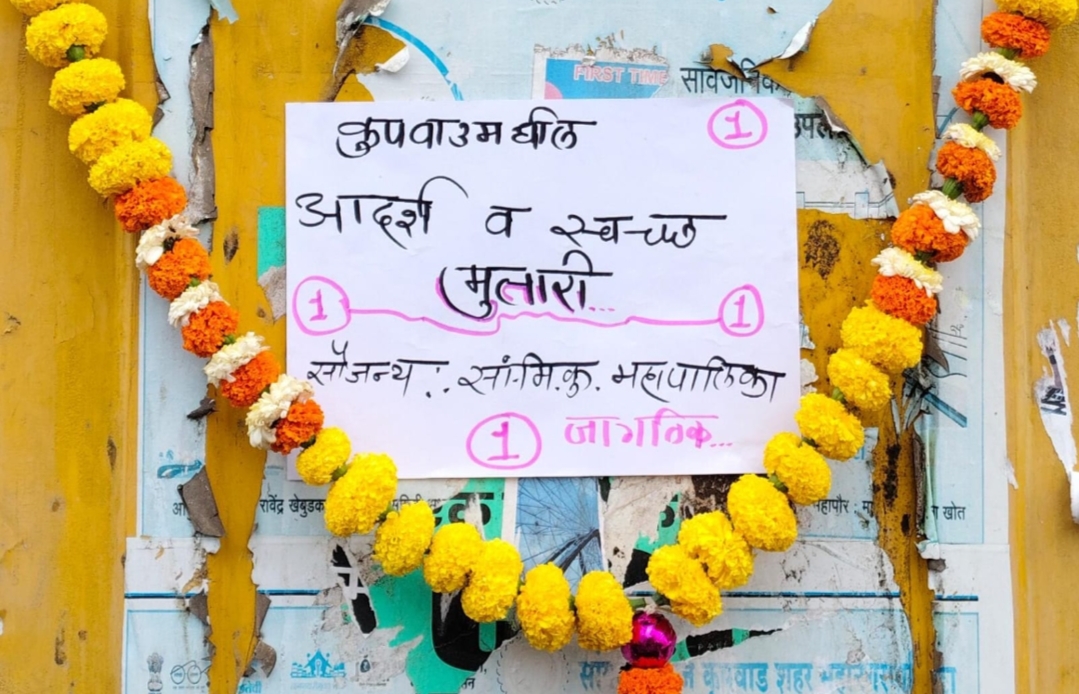 FIRST TIME
सार्वजनिक
कुपवाडमधील 1
आदर्श व स्वच्छ
मुतारी...
1 1
सौजन्य : सां.मि.कु. महापालिका
1 जागतिक...
रावेंद्र खेबुडक
महापौर :
खोत
कुपवाड शहर